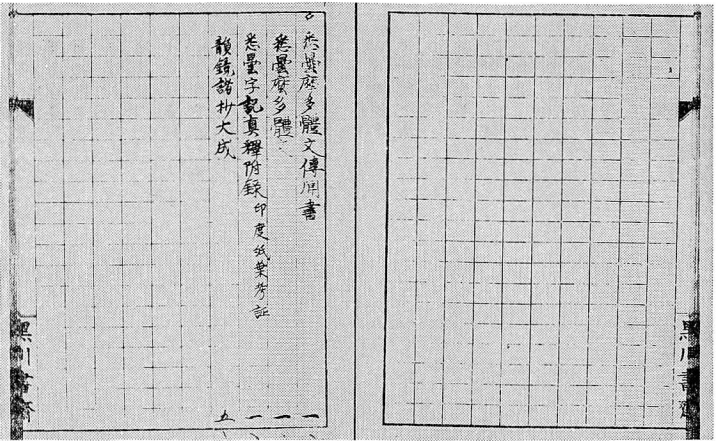 悉曇麼多體文傳用書 一
悉曇麼多體文 一
悉曇字記真釋附録 印度紙葉考証 一
韻鏡諸抄大成 五
黒川書斎
黒川書斎